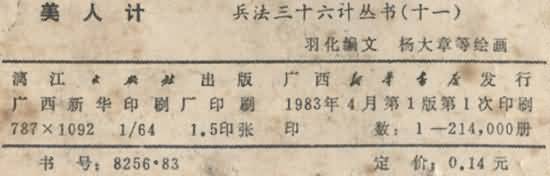 美人计 兵法三十六计丛书(十一)
羽化编文 杨大章等绘画
漓江出版社出版 广西新华书店发行
广西新华印刷厂印刷 1983年4月第1版第1次印刷
787×1092 1/64 1.5印张 印 数：1—214,000册
书号：8256·83 定价：0.14元